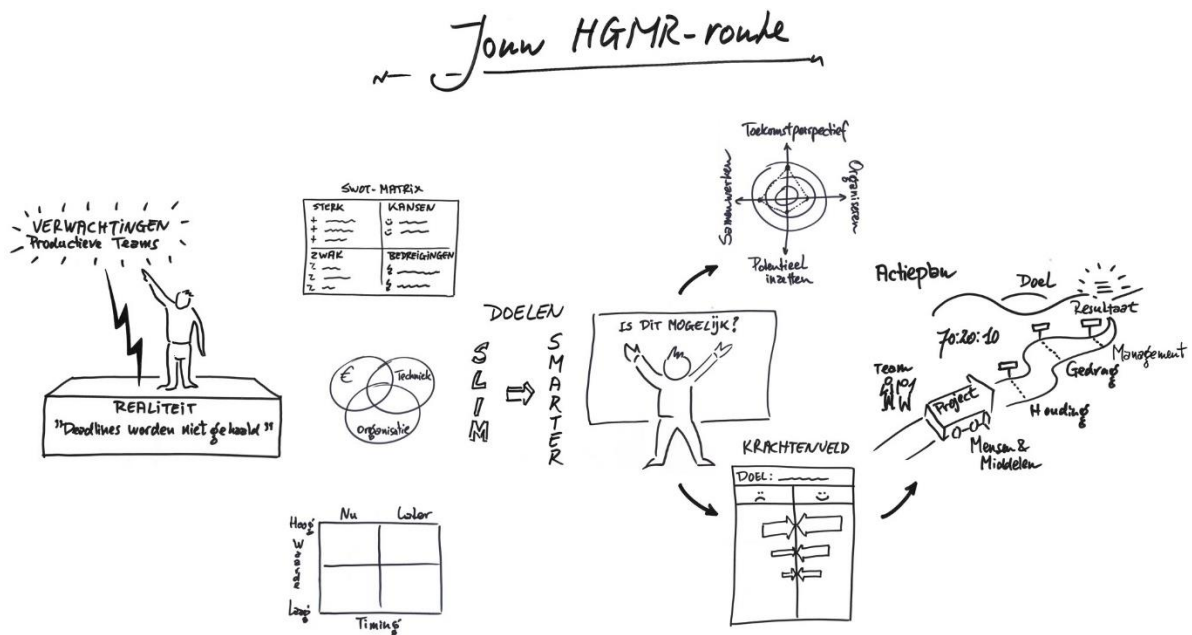 Jouw HGMR-route
VERWACHTINGEN
Productieve Teams
REALITEIT
"Deadlines worden niet gehaald"
SWOT-MATRIX
STERK
KANSEN
ZWAK
BEDREIGINGEN
€
Techniek
Organisatie
Nu
Later
Hoog
Waarde
Laag
Timing
DOELEN
SLIM
SMARTER
IS DIT MOGELIJK?
Toekomstperspectief
Samenwerken
Organiseren
Potentieel
inzetten
KRACHTENVELD
DOEL:
Actieplan
Doel
Resultaat
70:20:10
Management
Gedrag
Team
Project
Houding
Mensen &
Middelen